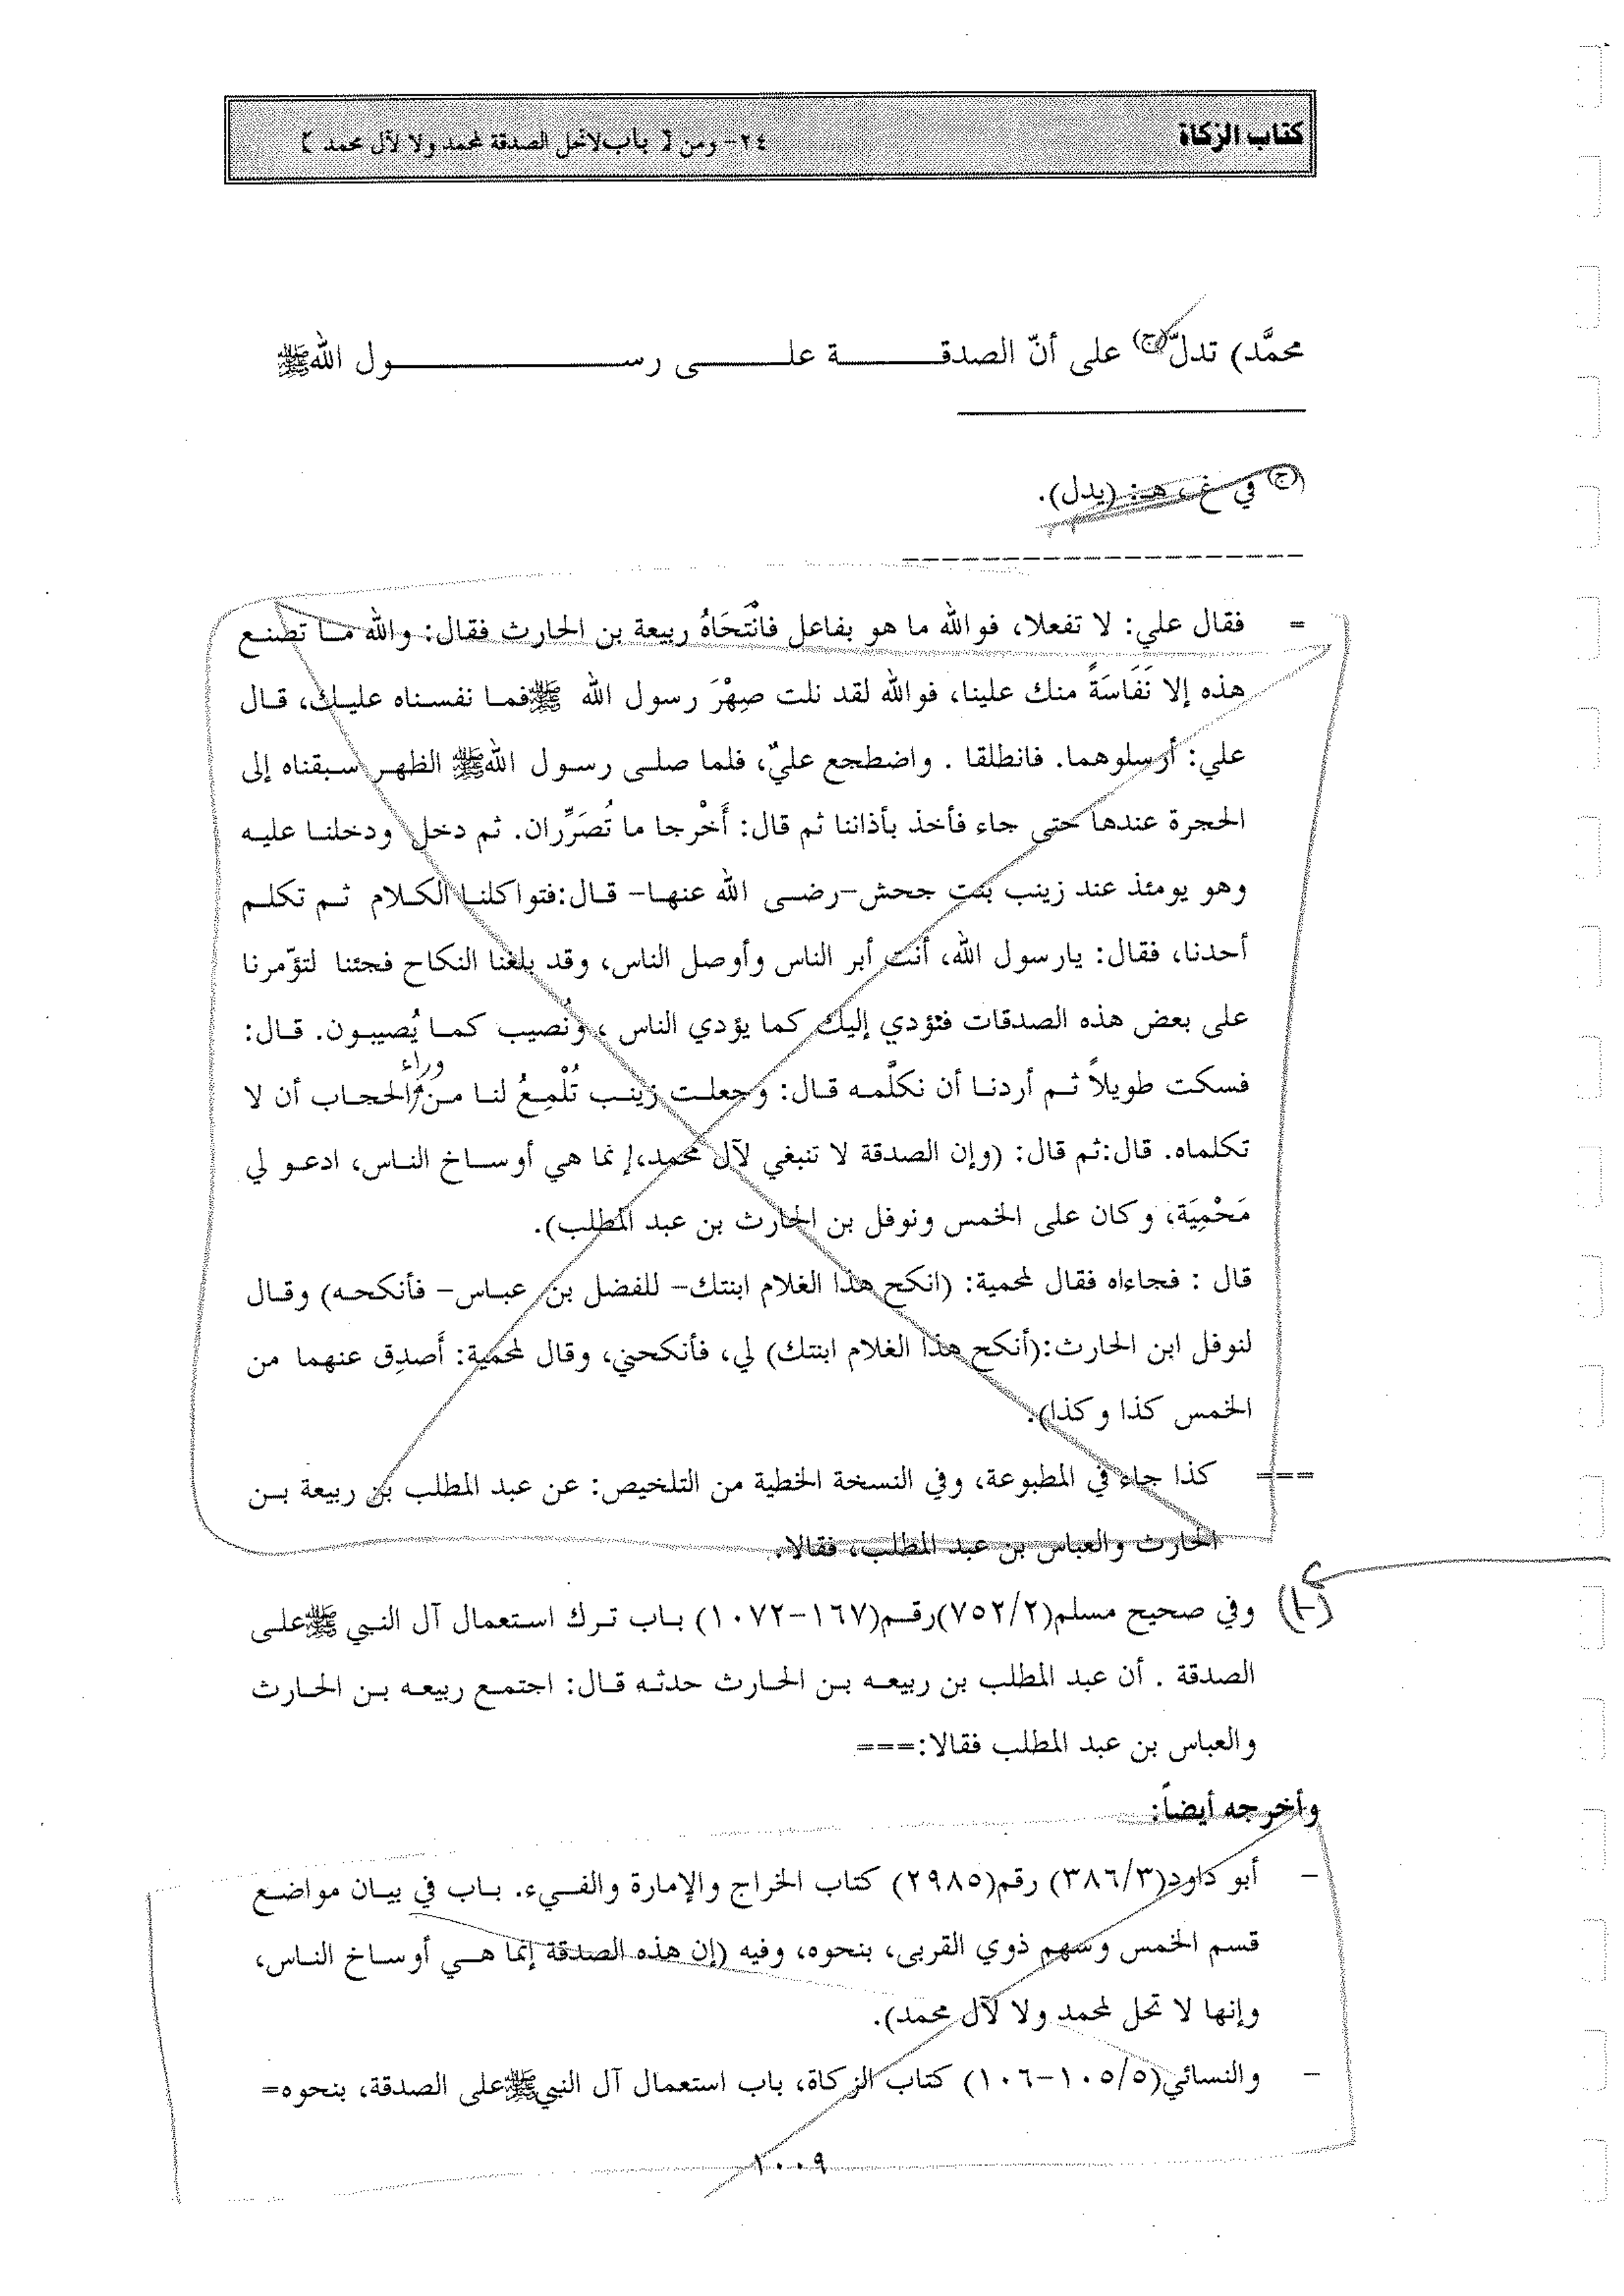 كتاب الزكاة
٢٤- ومن [ باب لا تحل الصدقة لمحمد ولا لآل محمد ]
محمَّد) تدلّ(ج) على أنّ الصدقة على رسول الله ﷺ
(ج) في غ، هـ: (يدل).
= فقال علي: لا تفعلا، فوالله ما هو بفاعل فانْتَحَاهُ ربيعة بن الحارث فقال: والله ما تصنع
هذه إلا نَفَاسَةً منك علينا، فوالله لقد نلت صِهْرَ رسول الله ﷺ فما نفسناه عليك، قال
علي: أرسلوهما. فانطلقا . واضطجع عليٌ، فلما صلى رسول الله ﷺ الظهر سبقناه إلى
الحجرة عندها حتى جاء فأخذ بأذاننا ثم قال: أَخْرجا ما تُصَرِّران. ثم دخل ودخلنا عليه
وهو يومئذ عند زينب بنت جحش-رضى الله عنها- قال:فتواكلنا الكلام ثم تكلم
أحدنا، فقال: يارسول الله، أنت أبر الناس وأوصل الناس، وقد بلغنا النكاح فجئنا لتؤمرنا
على بعض هذه الصدقات فنؤدي إليك كما يؤدي الناس ، ونُصيب كما يُصيبون. قال:
فسكت طويلاً ثم أردنا أن نكلّمه قال: وجعلت زينب تُلْمِعُ لنا من وراء الحجاب أن لا
تكلماه. قال:ثم قال: (وإن الصدقة لا تنبغي لآل محمد،إنما هي أوساخ الناس، ادعو لي
مَحْمِيَة، وكان على الخمس ونوفل بن الحارث بن عبد المطلب).
قال : فجاءاه فقال لمحمية: (انكح هذا الغلام ابنتك- للفضل بن عباس- فأنكحه) وقال
لنوفل ابن الحارث:(أنكح هذا الغلام ابنتك) لي، فأنكحني، وقال لمحمية: أَصدِق عنهما من
الخمس كذا وكذا).
=== كذا جاء في المطبوعة، وفي النسخة الخطية من التلخيص: عن عبد المطلب بن ربيعة بن
الحارث والعباس بن عبد المطلب، فقالا.
(١) وفي صحيح مسلم(٧٥٢/٢)رقم(١٦٧-١٠٧٢) باب ترك استعمال آل النبي ﷺ على
الصدقة . أن عبد المطلب بن ربيعه بن الحارث حدثه قال: اجتمع ربيعه بن الحارث
والعباس بن عبد المطلب فقالا:===
وأخرجه أيضاً:
- أبو داود(٣٨٦/٣) رقم(٢٩٨٥) كتاب الخراج والإمارة والفيء. باب في بيان مواضع
قسم الخمس وسهم ذوي القربى، بنحوه، وفيه (إن هذه الصدقة إنما هي أوساخ الناس،
وإنها لا تحل لمحمد ولا لآل محمد).
- والنسائي(١٠٥/٥-١٠٦) كتاب الزكاة، باب استعمال آل النبي ﷺ على الصدقة، بنحوه=
١٠٠٩